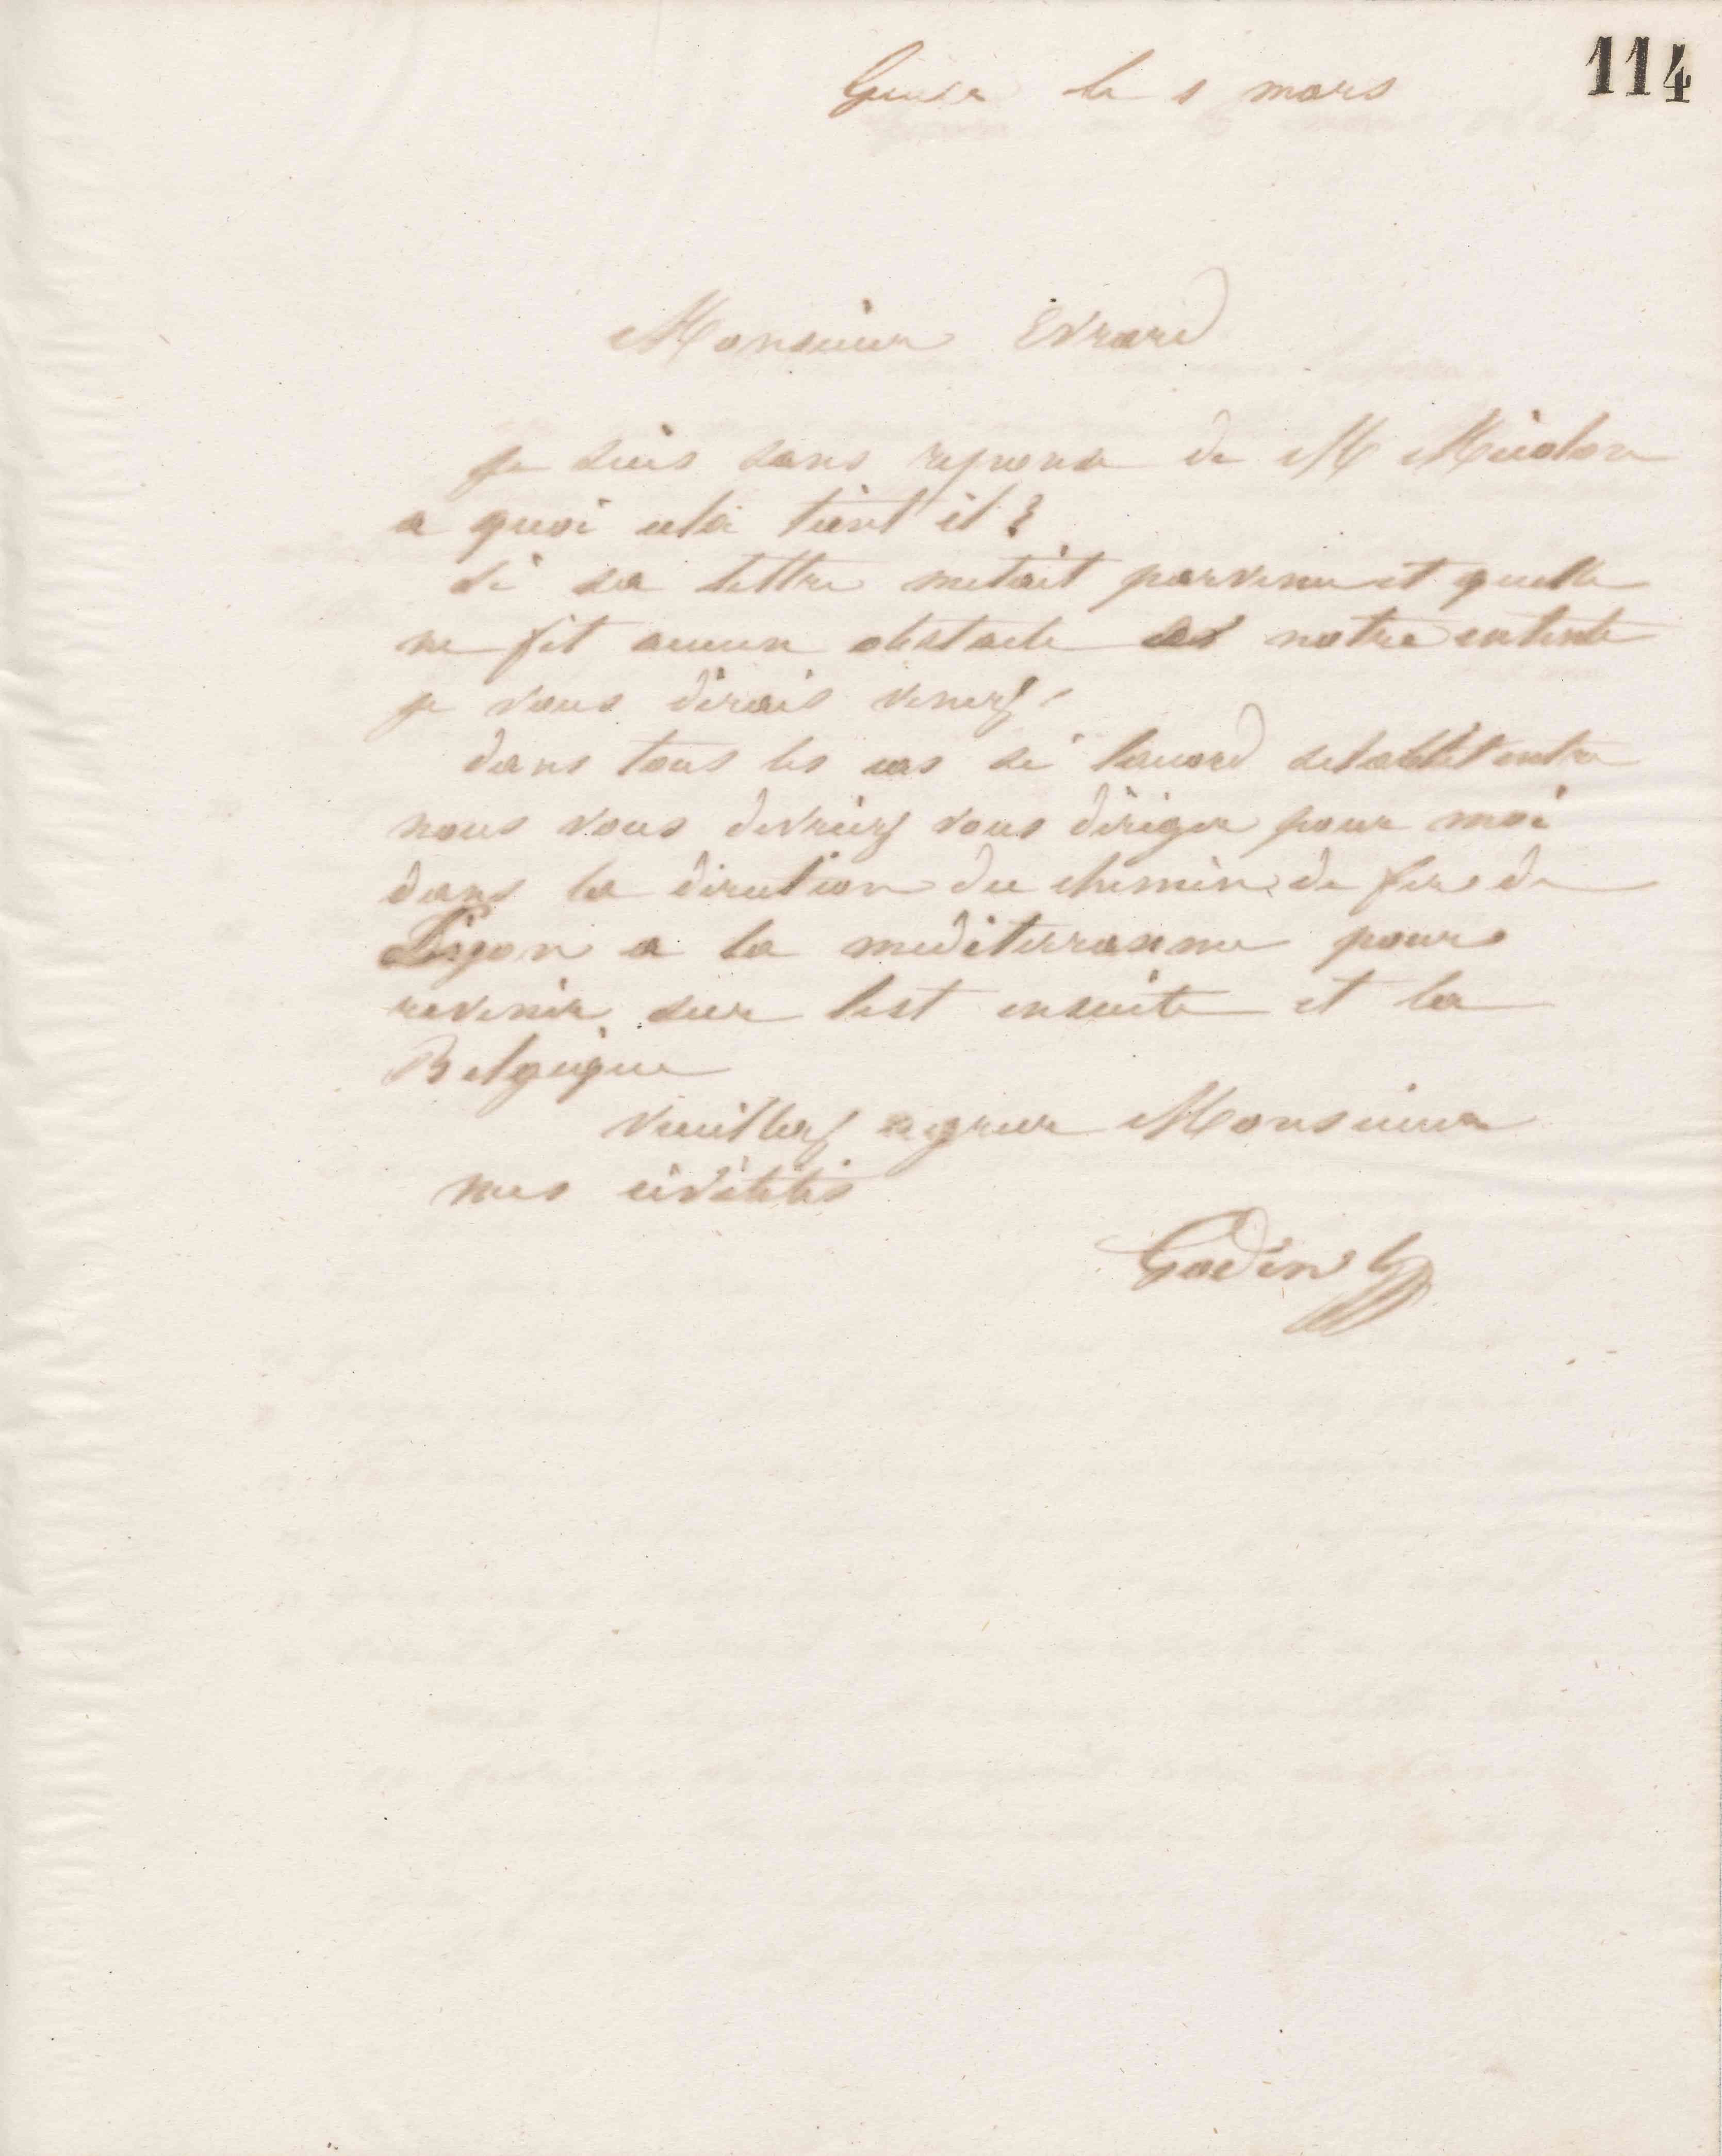 114
Guise le 1 mars
Monsieur Evrard
je suis sans reponse de M
a quoi cela tient il ?
si sa lettre metait parvenue et quelle
ne fit aucun obstacle a notre entente
je vous dirais venez.
dans tous les cas si laccord setablit entre
nous vous devriez vous diriger pour moi
dans la direction du chemin de fer de
Lyon a la mediterranne pour
revenir sur lest ensuite et la
Belgique
veuillez agreer Monsieur
mes civilités
Godin